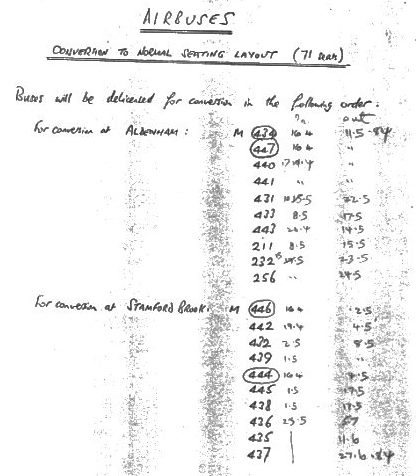 AIRBUSES
CONVERSION TO NORMAL SEATING LAYOUT (71 seats)
Buses will be delicensed for conversion in the following order:
In out
For conversion at ALDENHAM: M 434 16.4 11.5.84
447 16.4 "
440 17.4 "
441 " "
431 22.5
433 8.5 17.5
443 24.4 14.5
211 8.5 15.5
232 23.5
256 " 24.5
For conversion at STAMFORD BROOK: M 446 16.4 2.5
442 19.4 4.5
432 2.5 8.5
439 1.5 "
444 16.4
445 1.5
438 1.5
436 23.5
435
437 27.6.84